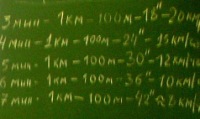 3 мин - 1км - 100м - 18" - 20км/
4 мин - 1км - 100м - 24" - 15км/ч
5 мин - 1км - 100м - 30" - 12км/ч
6 мин - 1км - 100м - 36" - 10км/ч
7 мин - 1км - 100м - 42"